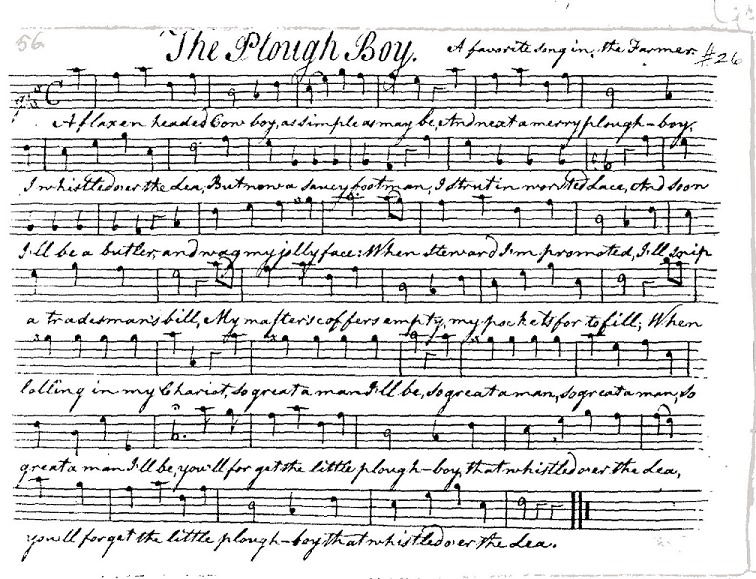 56
The Plough Boy. A favorite song in, the Farmer. #26
A flaxen headed Cow boy, as simple as may be, And next a merry plough-boy,
I whistled over the Lea, But now a saucy footman, I strut in worsted Lace, And soon
I'll be a butler, and wag my jolly face: When steward I'm promoted, I'll snip
a tradesman's bill, My master's coffers empty, my pockets for to fill; When
lolling in my Chariot, so great a man I'll be, so great a man, so great a man, so
great a man I'll be, you'll for get the little plough-boy, that whistled over the Lea,
you'll forget the little plough-boy that whistled over the Lea.